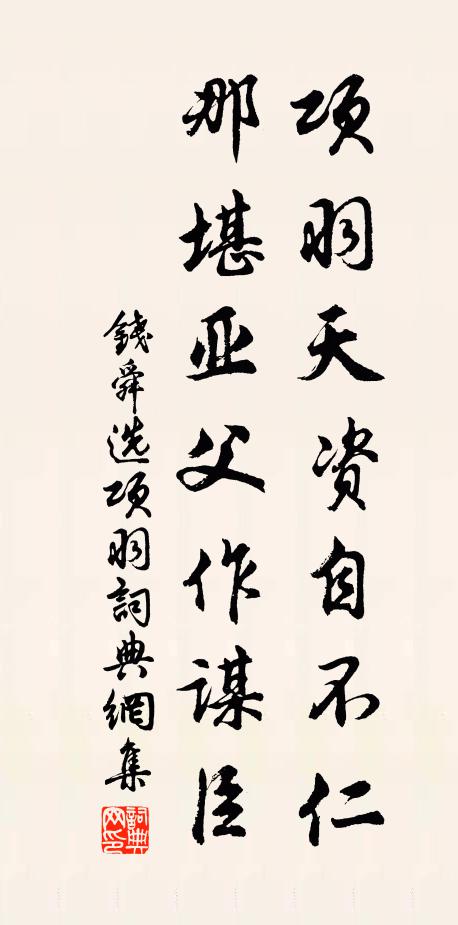 项羽天资自不仁
那堪亚父作谋臣
錢舜选项羽詞典網集
詞典
网印